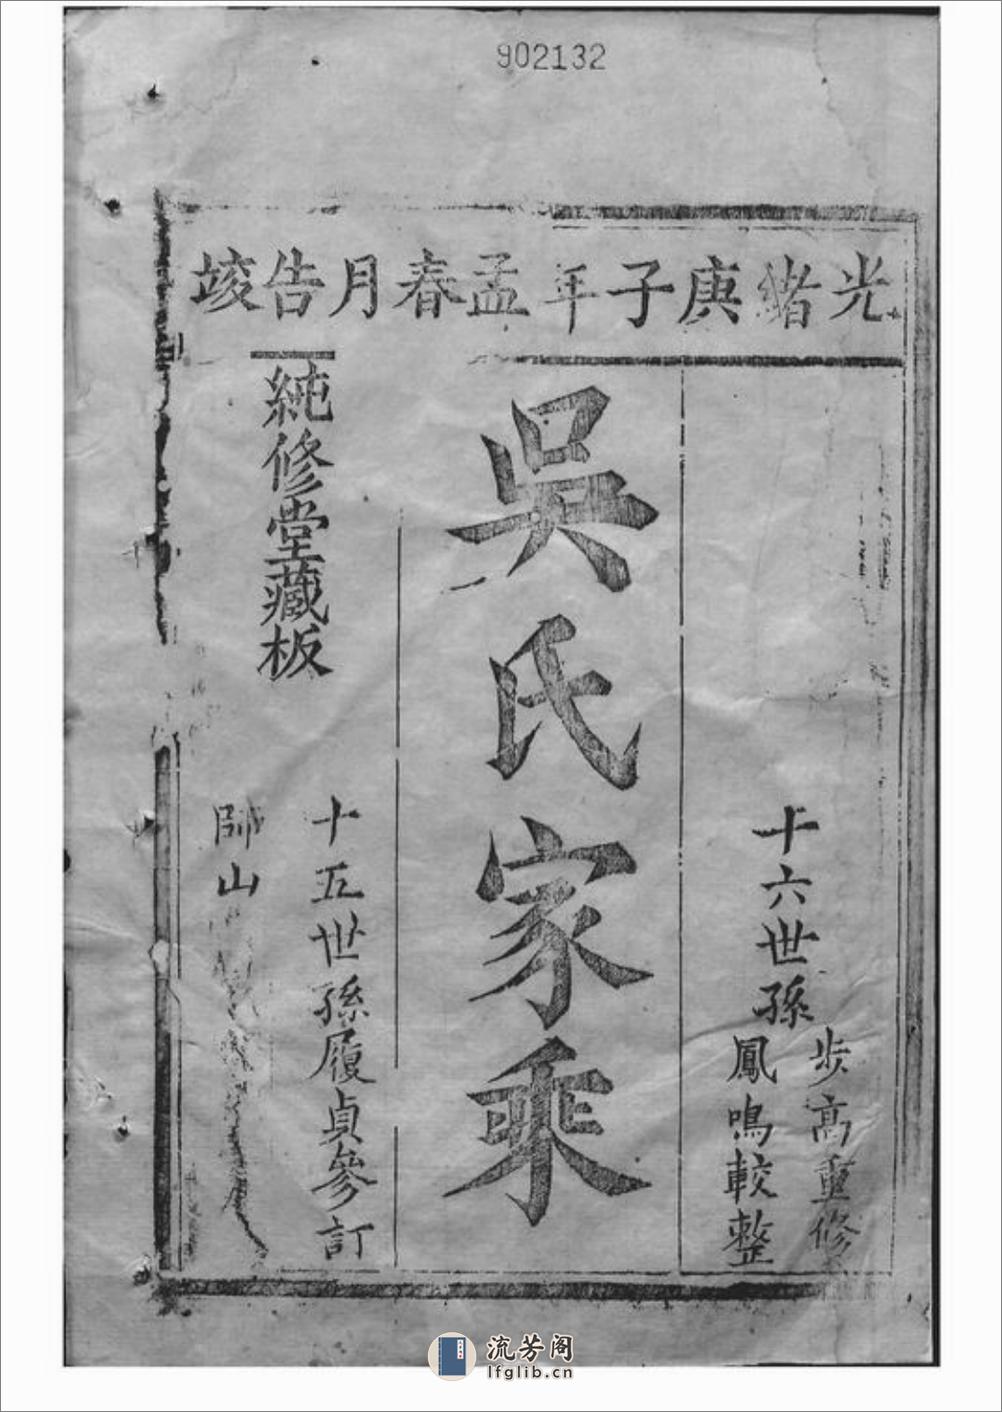 902132
光緒庚子年孟春月告竣
十六世孫
步高重修
鳳鳴較整
吳氏家乘
十五世孫履貞參訂
純修堂藏板
師山
流芳阁
lfglib.cn